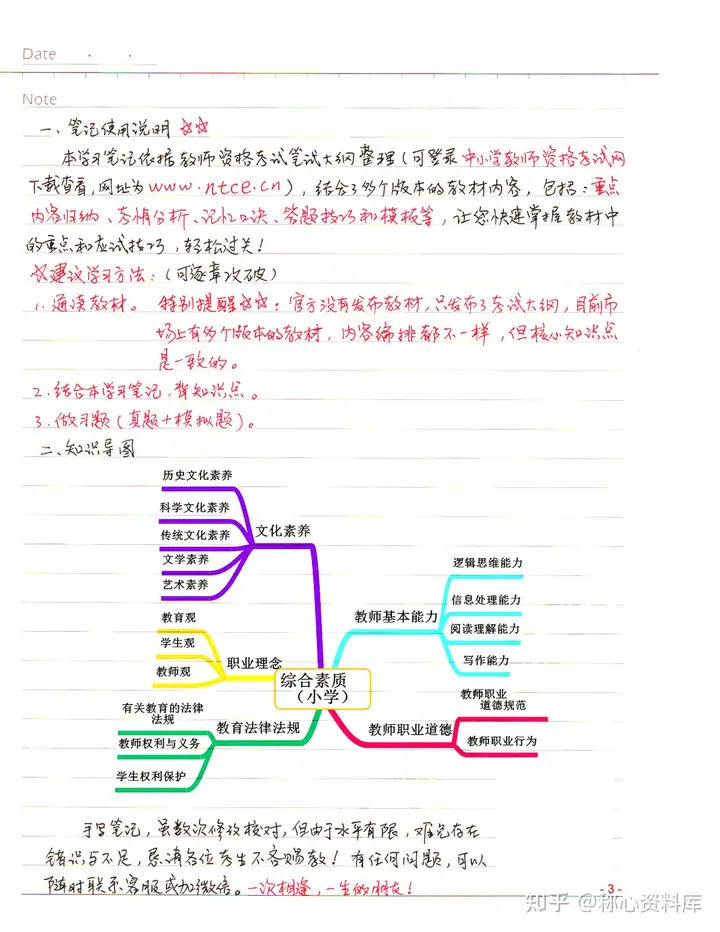 Date
Note
一、笔记使用说明 ☆☆
本学习笔记依据教师资格考试笔试大纲整理(可登录中小学教师资格考试网
下载查看,网址为www.ntce.cn),结合了多个版本的教材内容,包括:重点
内容归纳、考情分析、记忆口诀、答题技巧和模板等,让您快速掌握教材中
的重点和应试技巧,轻松过关!
☆建议学习方法:(可逐章攻破)
1.通读教材。 特别提醒☆☆:官方没有发布教材,只发布了考试大纲,目前市
场上有多个版本的教材,内容编排都不一样,但核心知识点
是一致的。
2.结合本学习笔记,背知识点。
3.做习题(真题+模拟题)。
二、知识导图
历史文化素养
科学文化素养
传统文化素养
文学素养
艺术素养
文化素养
教育观
学生观
教师观
职业理念
有关教育的法律
法规
教师权利与义务
学生权利保护
教育法律法规
综合素质
(小学)
教师基本能力
逻辑思维能力
信息处理能力
阅读理解能力
写作能力
教师职业道德
教师职业
道德规范
教师职业行为
手写笔记,虽数次修改核对,但由于水平有限,难免存在
错误与不足,恳请各位考生不吝赐教!有任何问题,可以
随时联系客服或加微信。一次相逢,一生的朋友!
-3-
知乎 @称心资料库